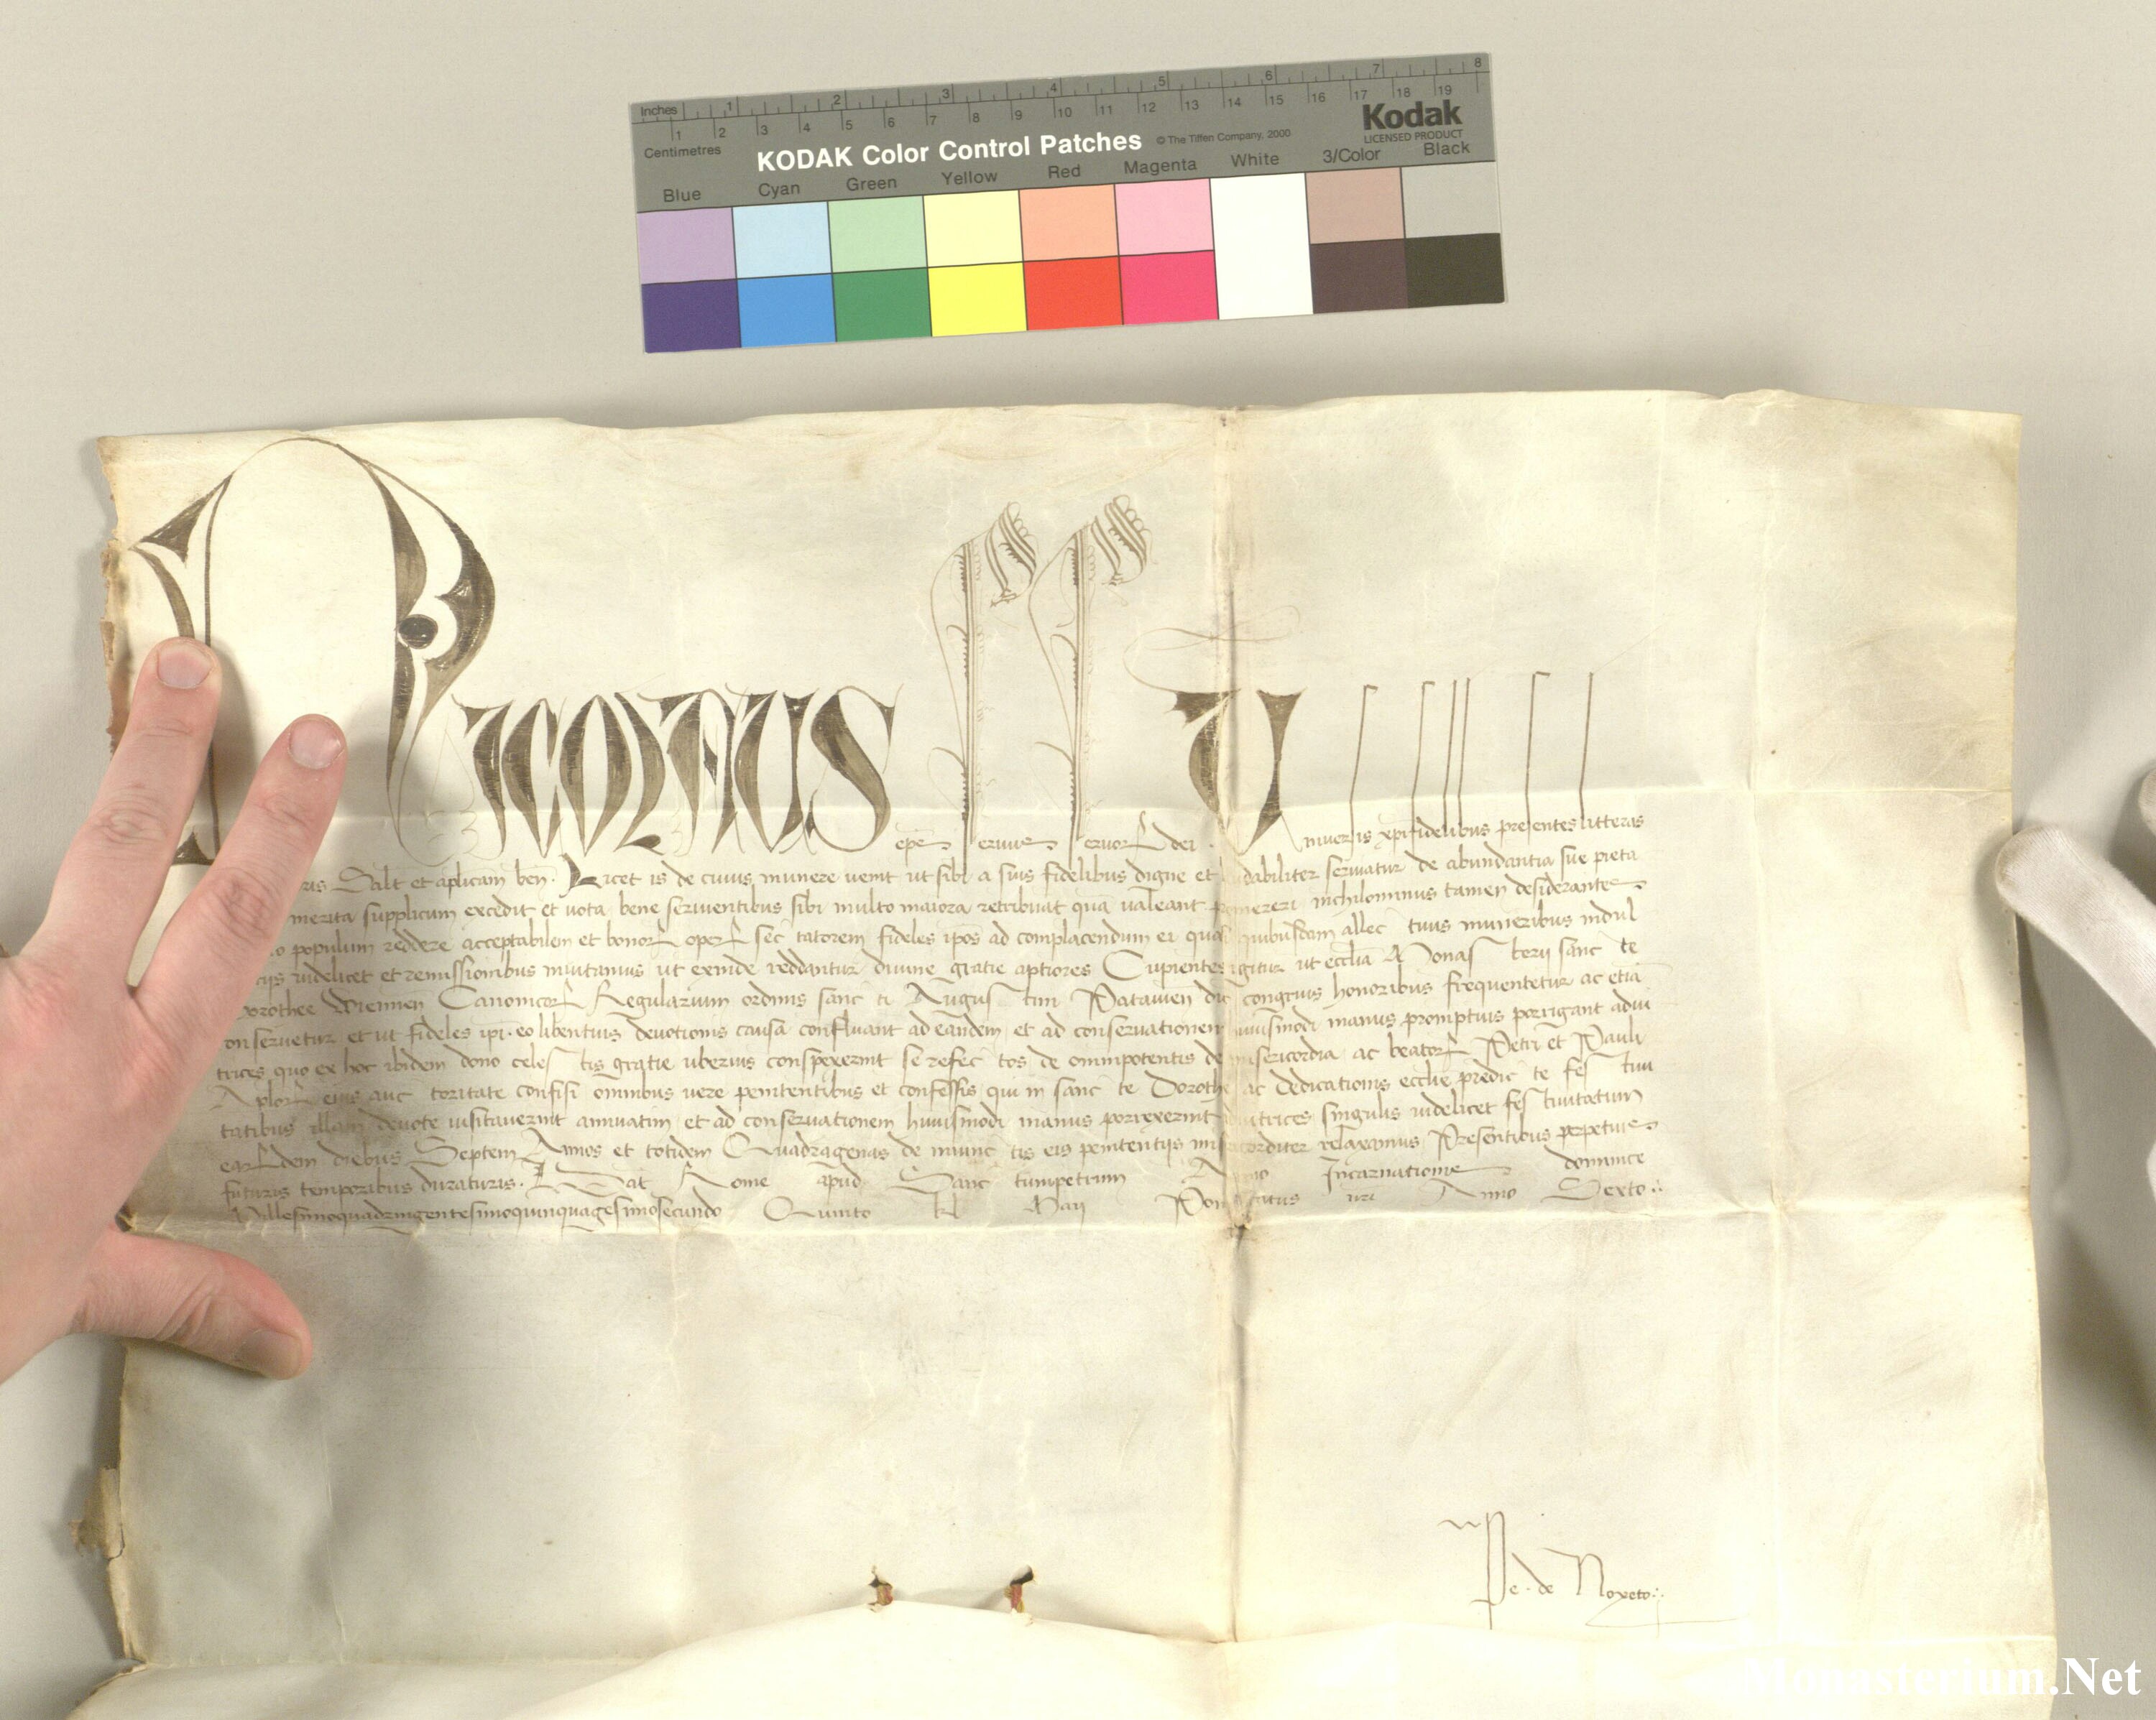 Inches 1 2 3 4 5 6 7 8
1 2 3 4 5 6 7 8 9 10 11 12 13 14 15 16 17 18 19
Centimetres
KODAK Color Control Patches © The Tiffen Company, 2000 Kodak
LICENSED PRODUCT
Blue Cyan Green Yellow Red Magenta White 3/Color Black
Nicolaus eps seruus seruor dei Uniuersis xpifidelibus presentes litteras
ris Salt et aplicam ben. Licet is de cuius munere uenit ut sibi a suis fidelibus digne et dabiliter seruiatur de abundantia sue pieta
merita supplicum excedit et uota bene seruientibus sibi multo maiora retribuat qua ualeant mereri nichilominus tamen desiderantes
populum reddere acceptabilem et bonor oper sectatorem fideles ipos ad complacendum ei quasi quibusdam allectiuis muneribus indul
cijs uidelicet et remissionibus inuitamus ut exinde reddantur diuine gratie aptiores Cupientes igitur ut ecclia Monasterij sancte
orothee Wiennen Canonicor Regularium ordinis sancti Augustini Patauien dioc congruis honoribus frequentetur ac etia
onseruetur et ut fideles ipi eo libentius deuotionis causa confluant ad eandem et ad conseruationem huiusmodi manus promptius porrigant adiu
trices quo ex hoc ibidem dono celestis gratie uberius conspexerint se refectos de omnipotentis dei misericordia ac beator Petri et Pauli
Aplor eius auctoritate confisi omnibus uere penitentibus et confessis qui in sancte Dorothe ac dedicationis ecclie predicte festiui
tatibus illam deuote uisitauerint annuatim et ad conseruationem huiusmodi manus porrexerint adiutrices singulis uidelicet festiuitatum
earundem diebus Septem Annos et totidem Quadragenas de iniunctis eis penitentijs misericorditer relaxamus Presentibus perpetuis
futuris temporibus duraturis. Dat Rome apud Sanctumpetrum Anno Incarnationis dominice
Millesimoquadringentesimoquinquagesimosecundo Quinto kl Maij Pontificatus nri Anno Sexto
Pe. de Noxeto
Monasterium.Net